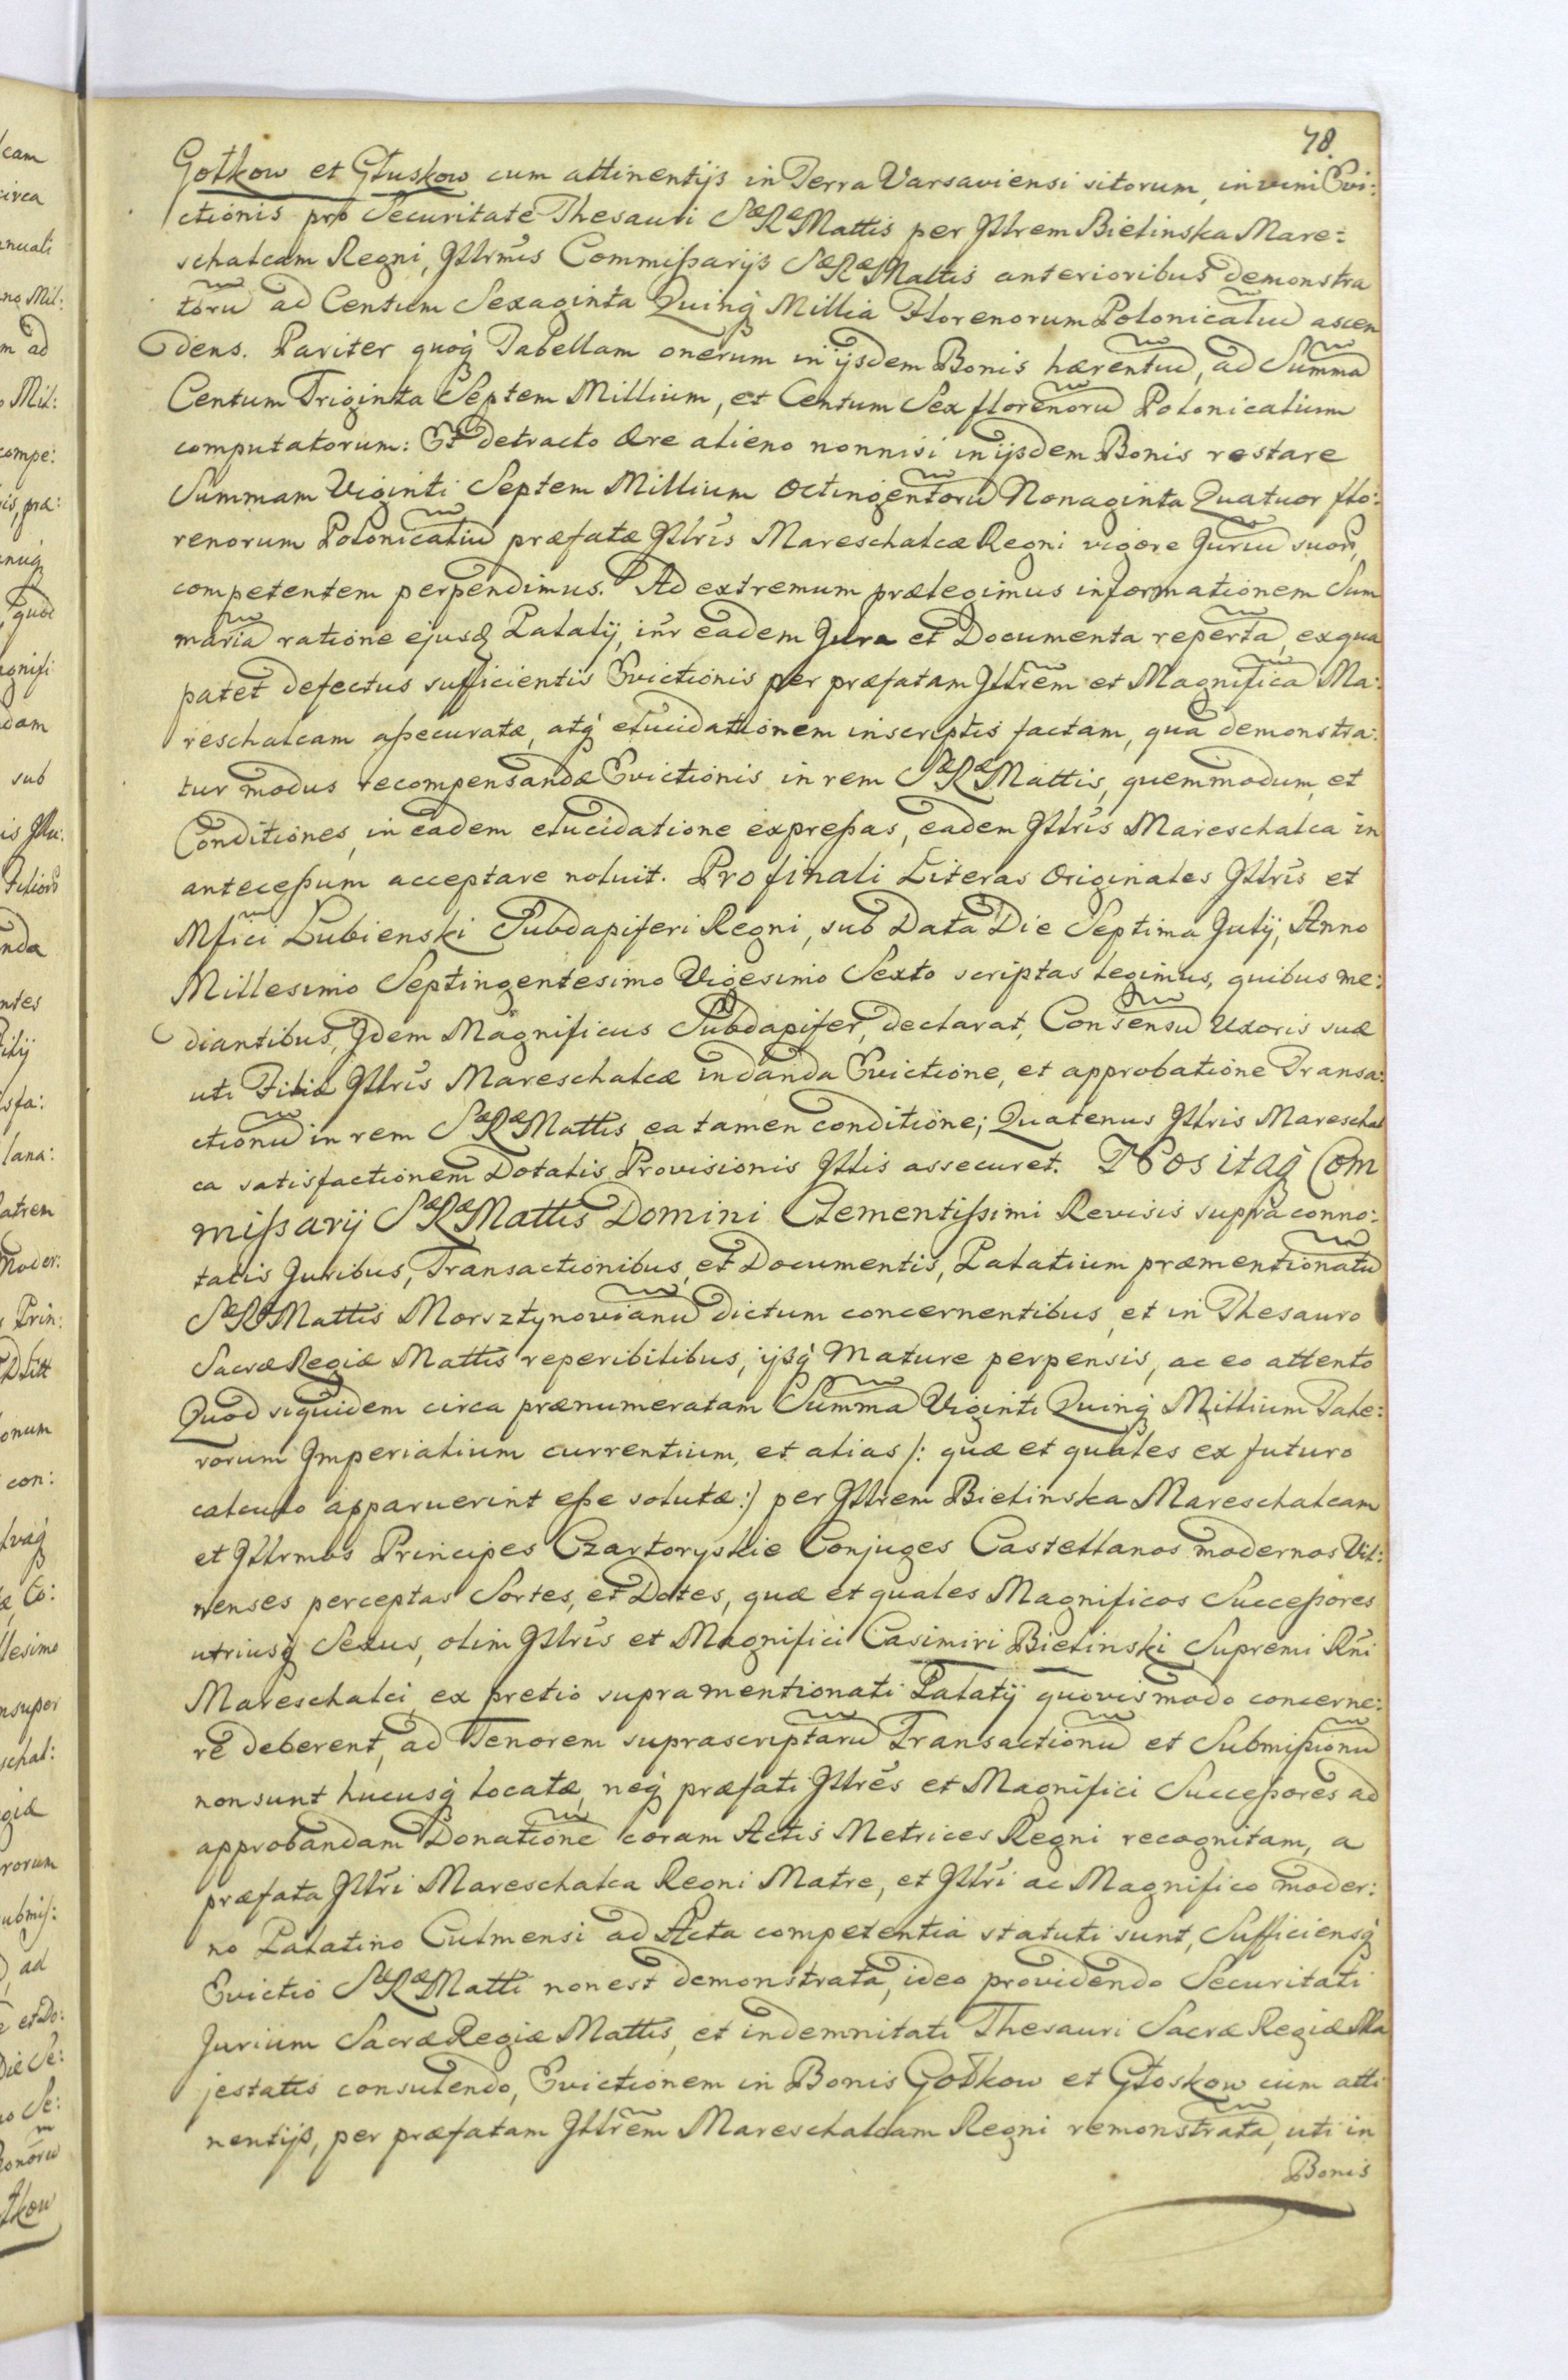 78.
Gołkow et Głuskow cum attinentijs in Terra Varsaviensi sitorum, invini Evi:
ctionis pro Securitate Thesauri SæRæMattis per Jllrem Bielinska Mare:
schalcam Regni, Jllrm̃is Commißarijs SæRæMattis anterioribus demonstra
torũ ad Centum Sexaginta Quinq́ Millia Florenorum Polonicaliũ ascen
dens. Pariter quoq́ Tabellam onerum in ijsdem Bonis hærentiũ, ad Summã
Centum Triginta Septem Millium, et Centum Sex florenorũ Polonicalium
computatorum: Et detracto Ære alieno nonnisi in ijsdem Bonis restare
Summam Viginti Septem Millium Octingentorũ Nonaginta Quatuor flo:
renorum Polonicaliũ præfatæ Jllris Mareschalcæ Regni vigore Juriũ suor̃,
competentem perpendimus. Ad extremum prælegimus informationem Sum
mariã ratione ejusd Palatij, inr eadem Jura et Documenta repertã, ex qua
patet defectus sufficientis Evictionis per præfatam Jllrem̃ et Magnificã Ma:
reschalcam aßecuratæ, atq́ elucidationem in scriptis factam, qua demonstra:
tur modus recompensandæ Evictionis in rem SæRæMattis, quemmodum, et
Conditiones, in eadem elucidatione expreßas, eadem Jllris Mareschalca in
anteceßum acceptare noluit. Pro finali Literas Originales Jllris et
Mfici Lubienski Subdapiferi Regni, sub Data Die Septima Julij, Anno
Millesimo Septingentesimo Vigesimo Sexto scriptas legimus, quibus me:
diantibus, Jdem Magnificus Subdapifer, declarat, Consensũ Uxoris suæ
uti Filiæ Jllris Mareschalcæ in danda Evictione, et approbatione Transa:
ctionũ in rem SæRæMattis ea tamen conditione; Quatenus Jllris Mareschal
ca satisfactionem Dotalis Provisionis Jllis assecuret. Nos itaq́ Com
mißarij SæRæMattis Domini Clementißimi Revisis supra conno:
tatis Juribus, Transactionibus, et Documentis, Palatium præmentionatũ
SæRæMattis Morsztynovianũ dictum concernentibus, et in Thesauro
Sacræ Regiæ Mattis reperibilibus, ijsq́ mature perpensis, ac eo attento
Quod siquidem circa prænumeratam Summã Viginti Quinq́ Millium Tale:
rorum Jmperialium currentium, et alias /: quæ et quales ex futuro
calculo apparuerint eße solutæ :/ per Jllrem Bielinska Mareschalcam
et Jllrmos Principes Czartoryskie Conjuges Castellanos modernos Vil:
nenses perceptas Sortes, et Dotes, quæ et quales Magnificos Succeßores
utriusq́ Sexus, olim Jllris et Magnifici Casimiri Bielinski Supremi Rñi
Mareschalci, ex pretio supramentionati Palatij quovis modo concerne:
re deberent, ad Tenorem suprascriptarũ Transactionũ et Submißionũ
non sunt hucusq́ locatæ, neq́ præfati Jllres et Magnifici Succeßores ad
approbandam Donationẽ coram Actis Metrices Regni recognitam, a
præfata Jllri Mareschalca Regni Matre, et Jllri ac Magnifico moder:
no Palatino Culmensi ad Acta competentia statuti sunt, Sufficiensq́
Evictio SæRæMatti non est demonstrata, ideo providendo Securitati
Jurium Sacræ Regiæ Mattis, et indemnitati Thesauri Sacræ Regiæ Ma
jestatis consulendo, Evictionem in Bonis Gołkow et Głoskow cum atti
nentijs, per præfatam Jllrem̃ Mareschalcam Regni remonstratã, uti in
Bonis